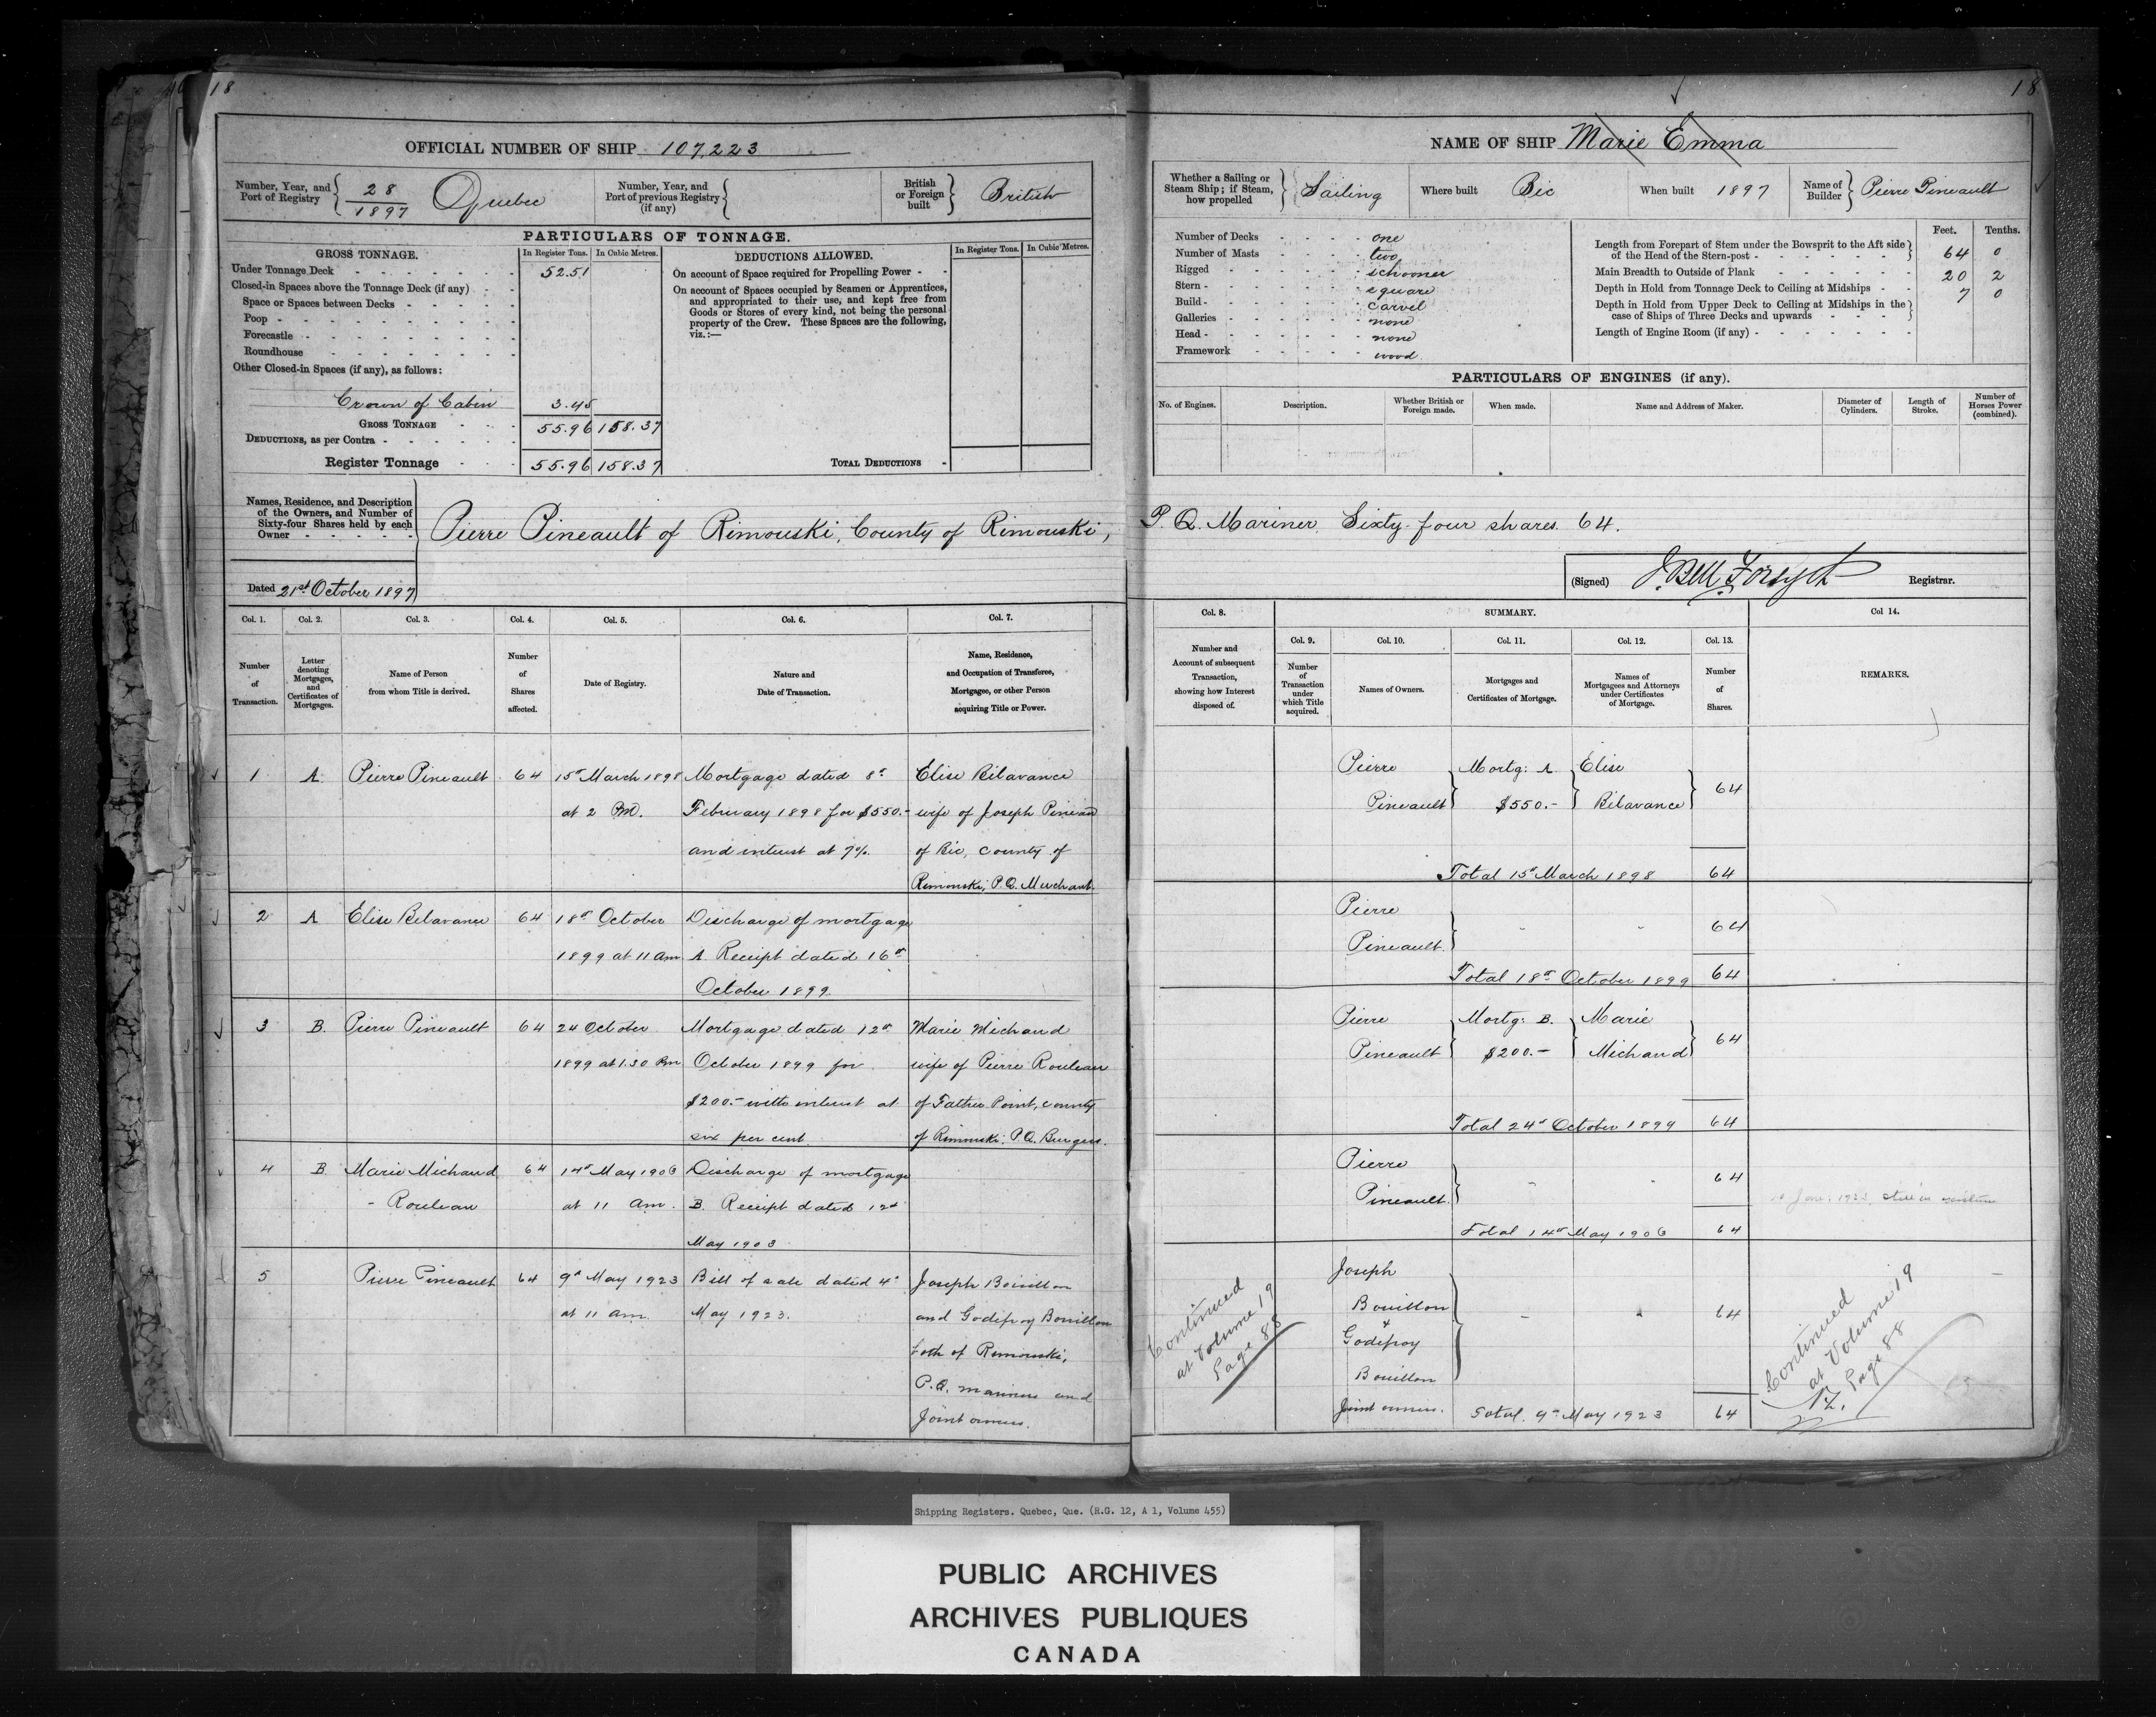 18
18
OFFICIAL NUMBER OF SHIP 107,223
Number, Year, and Port of Registry 28 1897 Quebec
Number, Year, and Port of previous Registry (if any)
British or Foreign built British
PARTICULARS OF TONNAGE.
GROSS TONNAGE.
In Register Tons. In Cubic Metres.
Under Tonnage Deck 52.51
Closed-in Spaces above the Tonnage Deck (if any)
Space or Spaces between Decks
Poop
Forecastle
Roundhouse
Other Closed-in Spaces (if any), as follows:
Crown of Cabin 3.45
GROSS TONNAGE 55.96 158.37
DEDUCTIONS, as per Contra
Register Tonnage 55.96 158.37
DEDUCTIONS ALLOWED.
In Register Tons. In Cubic Metres.
On account of Space required for Propelling Power
On account of Spaces occupied by Seamen or Apprentices,
and appropriated to their use, and kept free from
Goods or Stores of every kind, not being the personal
property of the Crew. These Spaces are the following,
viz.:—
TOTAL DEDUCTIONS
NAME OF SHIP Marie Emma
Whether a Sailing or Steam Ship; if Steam, how propelled Sailing
Where built Bic
When built 1897
Name of Builder Pierre Pineault
Number of Decks one
Number of Masts two
Rigged schooner
Stern square
Build carvel
Galleries none
Head none
Framework wood
Feet. Tenths.
Length from Forepart of Stem under the Bowsprit to the Aft side
of the Head of the Stern-post 64 0
Main Breadth to Outside of Plank 20 2
Depth in Hold from Tonnage Deck to Ceiling at Midships 7 0
Depth in Hold from Upper Deck to Ceiling at Midships in the
case of Ships of Three Decks and upwards
Length of Engine Room (if any)
PARTICULARS OF ENGINES (if any).
No. of Engines. Description. Whether British or Foreign made. When made. Name and Address of Maker. Diameter of Cylinders. Length of Stroke. Number of Horses Power (combined).
Names, Residence, and Description
of the Owners, and Number of
Sixty-four Shares held by each
Owner
Pierre Pineault of Rimouski, County of Rimouski, P.Q. Mariner Sixty-four shares 64.
Dated 21st October 1897
(Signed) J. Bell Forsyth Registrar.
Col. 1. Col. 2. Col. 3. Col. 4. Col. 5. Col. 6. Col. 7.
Number of Transaction.
Letter denoting Mortgages, and Certificates of Mortgages.
Name of Person from whom Title is derived.
Number of Shares affected.
Date of Registry.
Nature and Date of Transaction.
Name, Residence, and Occupation of Transferee, Mortgagee, or other Person acquiring Title or Power.
Col. 8. SUMMARY. Col 14.
Col. 9. Col. 10. Col. 11. Col. 12. Col. 13.
Number and Account of subsequent Transaction, showing how Interest disposed of.
Number of Transaction under which Title acquired.
Names of Owners.
Mortgages and Certificates of Mortgage.
Names of Mortgagees and Attorneys under Certificates of Mortgage.
Number of Shares.
REMARKS.
1 A. Pierre Pineault 64 15th March 1898 Mortgage dated 8th Elise Bélavance
at 2 PM. February 1898 for $550.- wife of Joseph Pineau
and interest at 7%. of Bic, County of
Rimouski, P.Q. Merchant.
Pierre Mortg: A Elise
Pineault $550.- Bélavance 64
Total 15th March 1898 64
2 A Elise Belavance 64 18th October Discharge of mortgage
1899 at 11 am A. Receipt dated 16th
October 1899.
Pierre
Pineault. 64
Total 18th October 1899 64
3 B. Pierre Pineault 64 24 October Mortgage dated 12th Marie Michaud
1899 at 1.30 Pm October 1899 for wife of Pierre Rouleau
$200.- with interest at of Father Point, county
six per cent. of Rimouski. P.Q. Burgess.
Pierre Mortg: B. Marie
Pineault $200.- Michaud 64
Total 24th October 1899 64
4 B Marie Michaud 64 14th May 1906 Discharge of mortgage
- Rouleau at 11 am. B. Receipt dated 12th
May 1903
Pierre
Pineault. 64
Total 14th May 1906 64
Jan. 1923
5 Pierre Pineault 64 9th May 1923 Bill of sale dated 4th Joseph Bouillon
at 11 am. May 1923. and Godefroy Bouillon
both of Rimouski,
P.Q. mariners and
Joint owners.
Continued
at Volume 19
Page 88
Joseph
Bouillon
&
Godefroy
Bouillon 64
Joint owners. Total. 9th May 1923 64
Continued
at Volume 19
Page 88
Shipping Registers. Quebec, Que. (R.G. 12, A 1, Volume 455)
PUBLIC ARCHIVES
ARCHIVES PUBLIQUES
CANADA